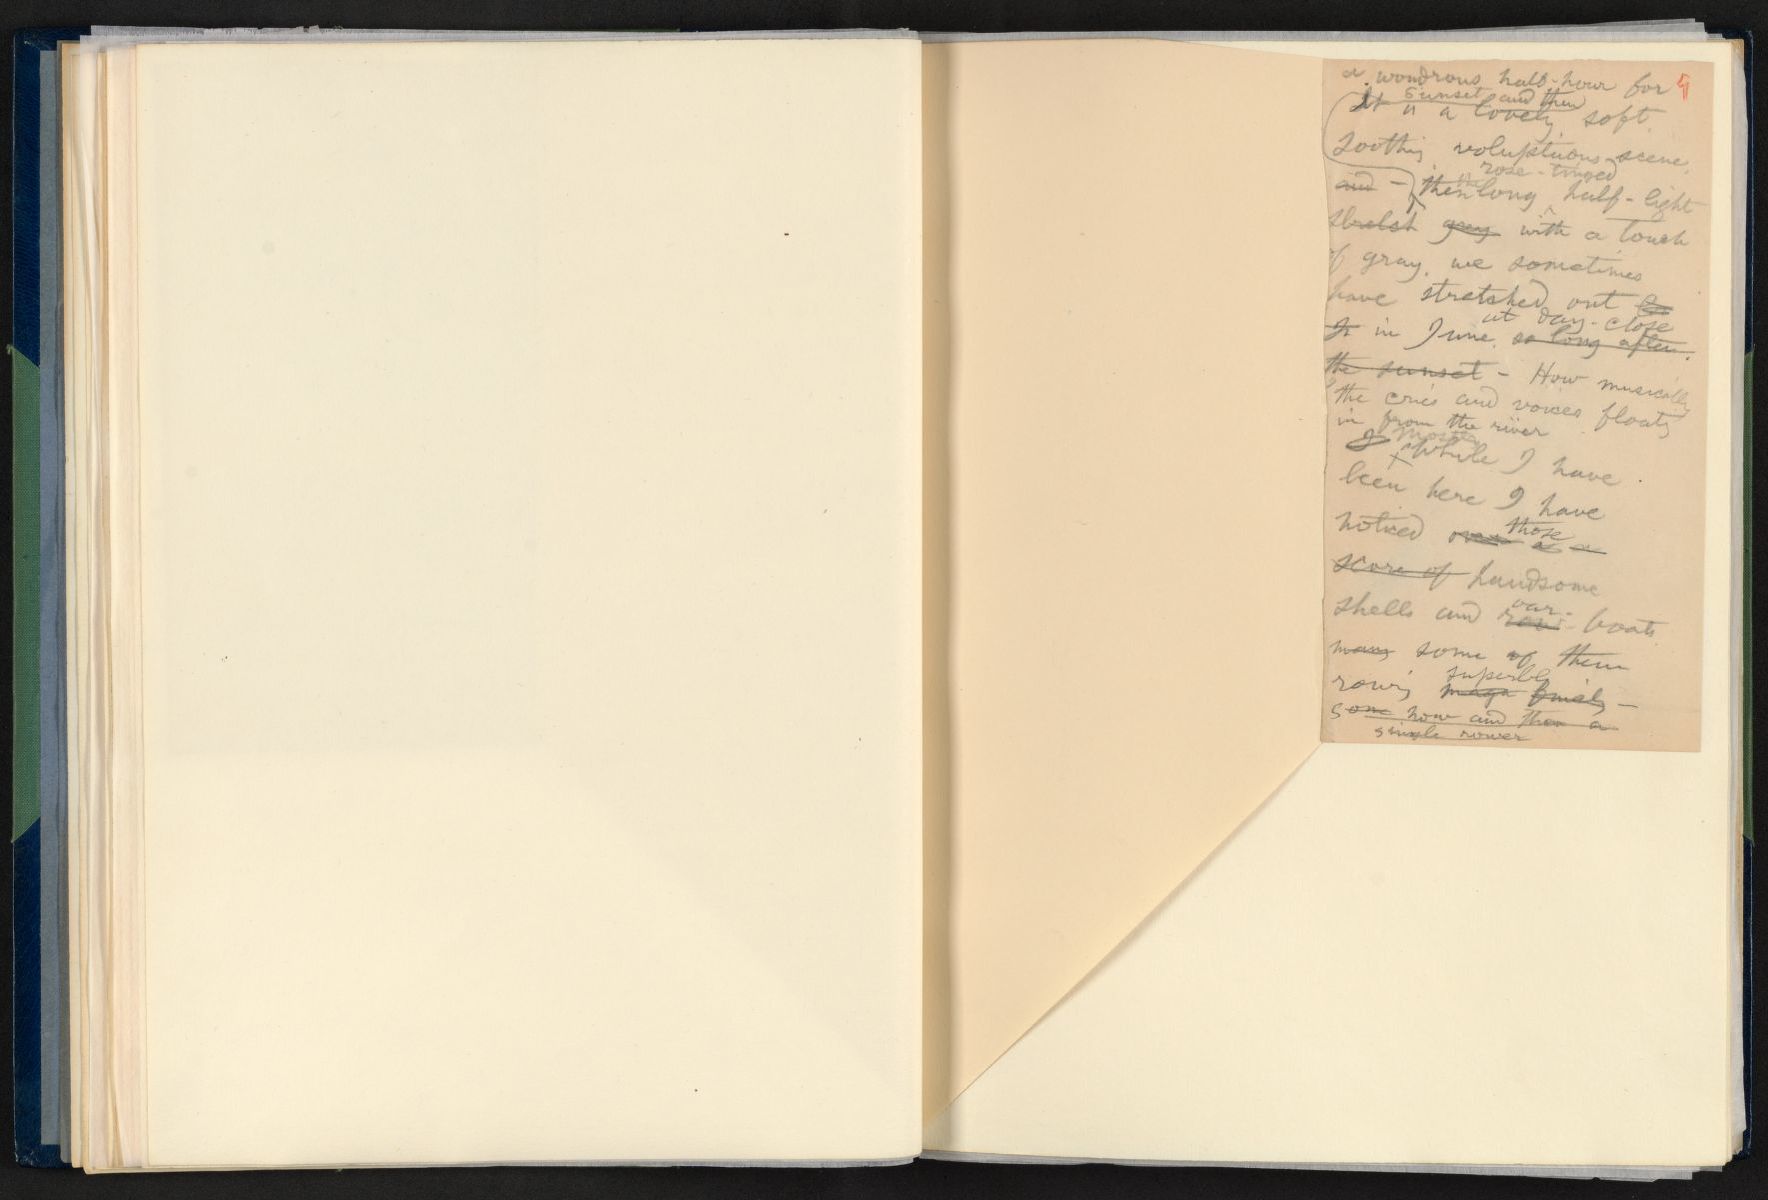 a wondrous half-hour for 5
sunset and then
It is a lovely soft
soothing voluptuous scene,
rose-tinged
and – then the long half-light
stretch gray with a touch
of gray, we sometimes
have stretched out
at day-close
in June, so long after
the sunset – How musically
the cries and voices floating
in from the river
Mostly
I while I have
been here I have
noticed over those a
score of handsome
shells and row oar-boats
many some of them
superbly
rowing finely –
some now and then a
single rower